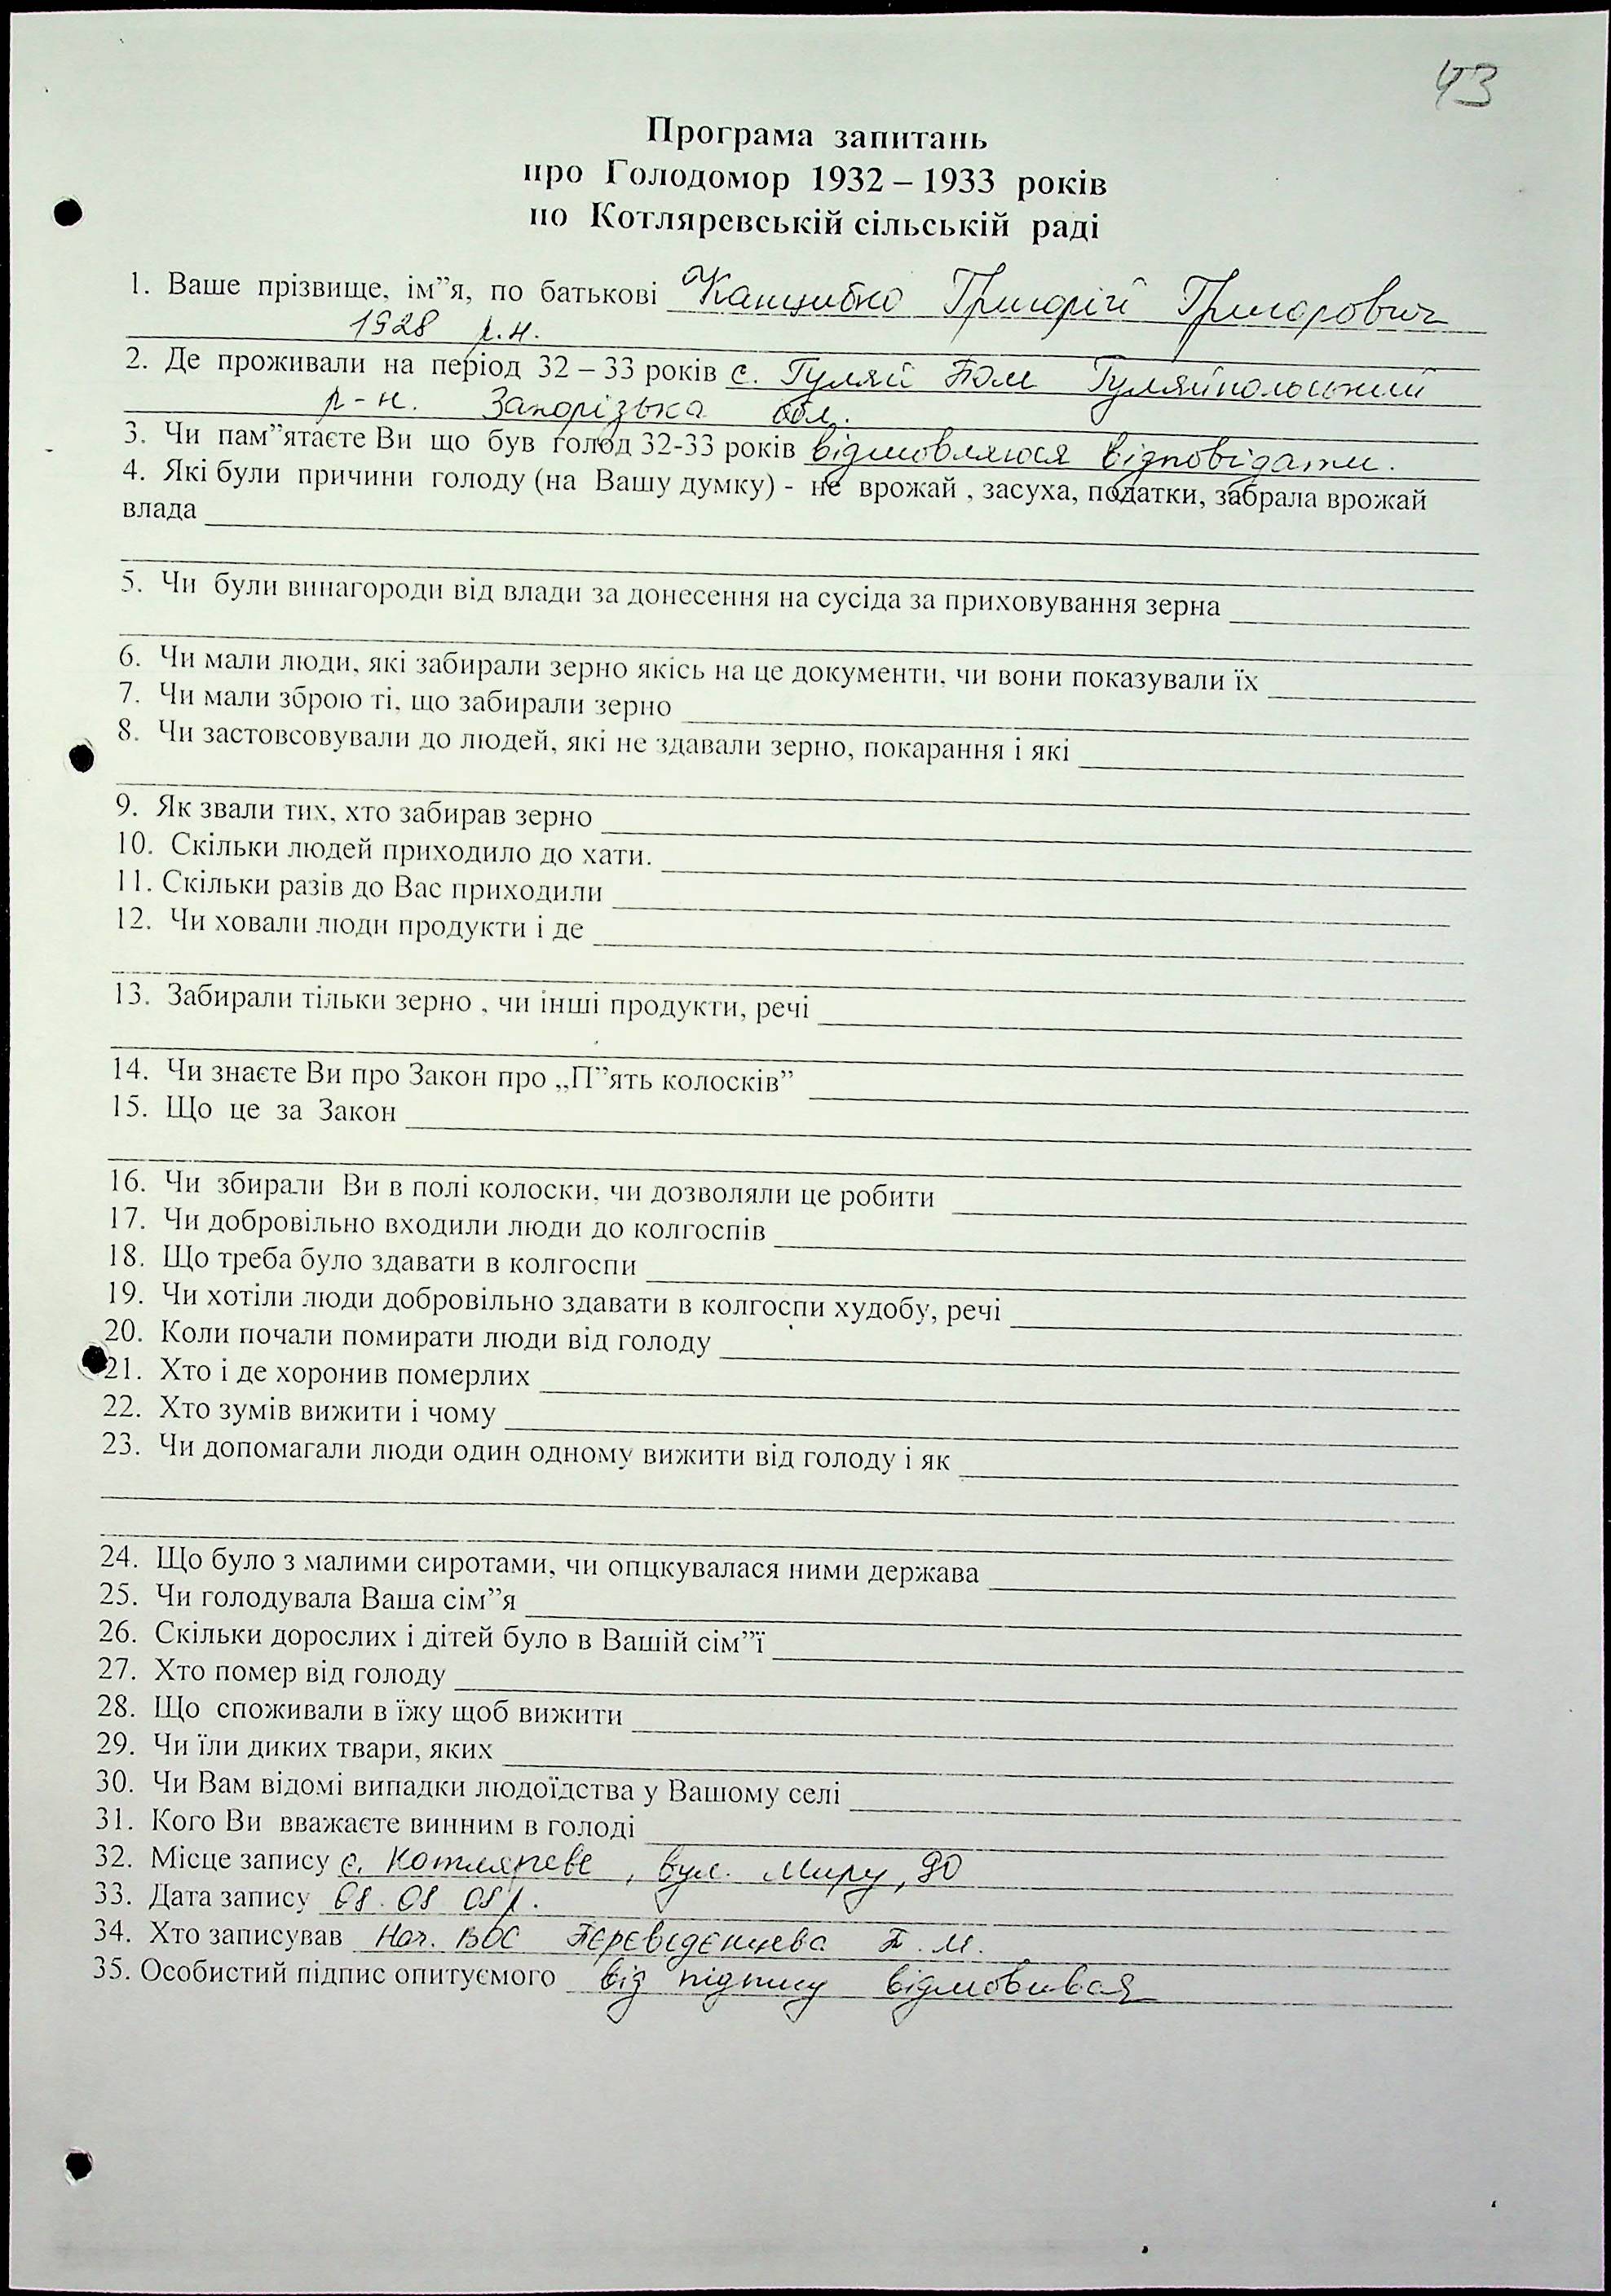 43
Програма запитань
про Голодомор 1932 – 1933 років
по Котляревській сільській раді
1. Ваше прізвище, ім”я, по батькові Канцибко Григорій Григорович
1928 р.н.
2. Де проживали на період 32 – 33 років с. Гуляй Поле Гуляйпольський
р-н. Запорізька обл.
3. Чи пам”ятаєте Ви що був голод 32-33 років відмовляюся відповідати.
4. Які були причини голоду (на Вашу думку) - не врожай , засуха, податки, забрала врожай
влада
5. Чи були винагороди від влади за донесення на сусіда за приховування зерна
6. Чи мали люди, які забирали зерно якісь на це документи, чи вони показували їх
7. Чи мали зброю ті, що забирали зерно
8. Чи застовсовували до людей, які не здавали зерно, покарання і які
9. Як звали тих, хто забирав зерно
10. Скільки людей приходило до хати.
11. Скільки разів до Вас приходили
12. Чи ховали люди продукти і де
13. Забирали тільки зерно , чи інші продукти, речі
14. Чи знаєте Ви про Закон про „П”ять колосків”
15. Що це за Закон
16. Чи збирали Ви в полі колоски, чи дозволяли це робити
17. Чи добровільно входили люди до колгоспів
18. Що треба було здавати в колгоспи
19. Чи хотіли люди добровільно здавати в колгоспи худобу, речі
20. Коли почали помирати люди від голоду
21. Хто і де хоронив померлих
22. Хто зумів вижити і чому
23. Чи допомагали люди один одному вижити від голоду і як
24. Що було з малими сиротами, чи опцкувалася ними держава
25. Чи голодувала Ваша сім”я
26. Скільки дорослих і дітей було в Вашій сім”ї
27. Хто помер від голоду
28. Що споживали в їжу щоб вижити
29. Чи їли диких твари, яких
30. Чи Вам відомі випадки людоїдства у Вашому селі
31. Кого Ви вважаєте винним в голоді
32. Місце запису с. Котляреве , вул. Миру, 90
33. Дата запису 08. 08 08р.
34. Хто записував Нач. ВОС Переведенцева Т. М.
35. Особистий підпис опитуємого від підпису відмовився